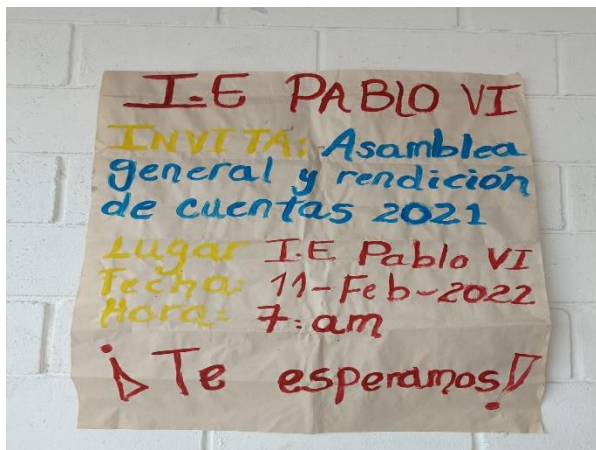 I.E PABLO VI
INVITA: Asamblea
general y rendición
de cuentas 2021
Lugar I.E Pablo VI
Fecha: 11-Feb-2022
Hora: 7:am
¡Te esperamos!